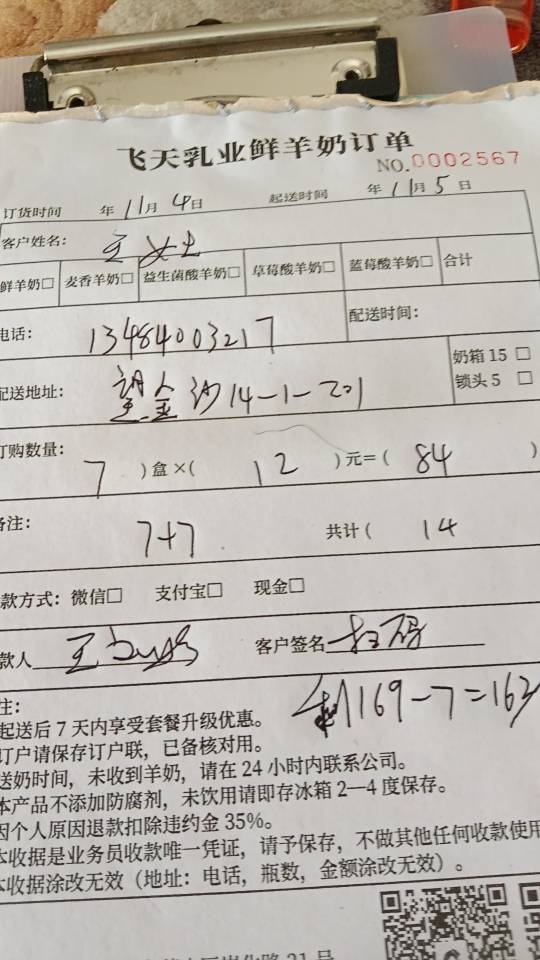 飞天乳业鲜羊奶订单
NO.0002567
订货时间 年11月4日 起送时间 年11月5日
客户姓名: 王女士
鲜羊奶□ 麦香羊奶□ 益生菌酸羊奶□ 草莓酸羊奶□ 蓝莓酸羊奶□ 合计
电话: 13484003217 配送时间:
配送地址: 望金沙14-1-201 奶箱 15 □
锁头 5 □
订购数量: 7 )盒×( 12 )元=( 84 )
备注: 7+7 共计( 14
款方式: 微信□ 支付宝□ 现金□
款人 王 客户签名 扫码
169-7=163
注:
起送后 7 天内享受套餐升级优惠。
订户请保存订户联,已备核对用。
送奶时间,未收到羊奶,请在 24 小时内联系公司。
本产品不添加防腐剂,未饮用请即存冰箱 2—4 度保存。
因个人原因退款扣除违约金 35%。
本收据是业务员收款唯一凭证,请予保存,不做其他任何收款使用
本收据涂改无效(地址:电话,瓶数,金额涂改无效)。